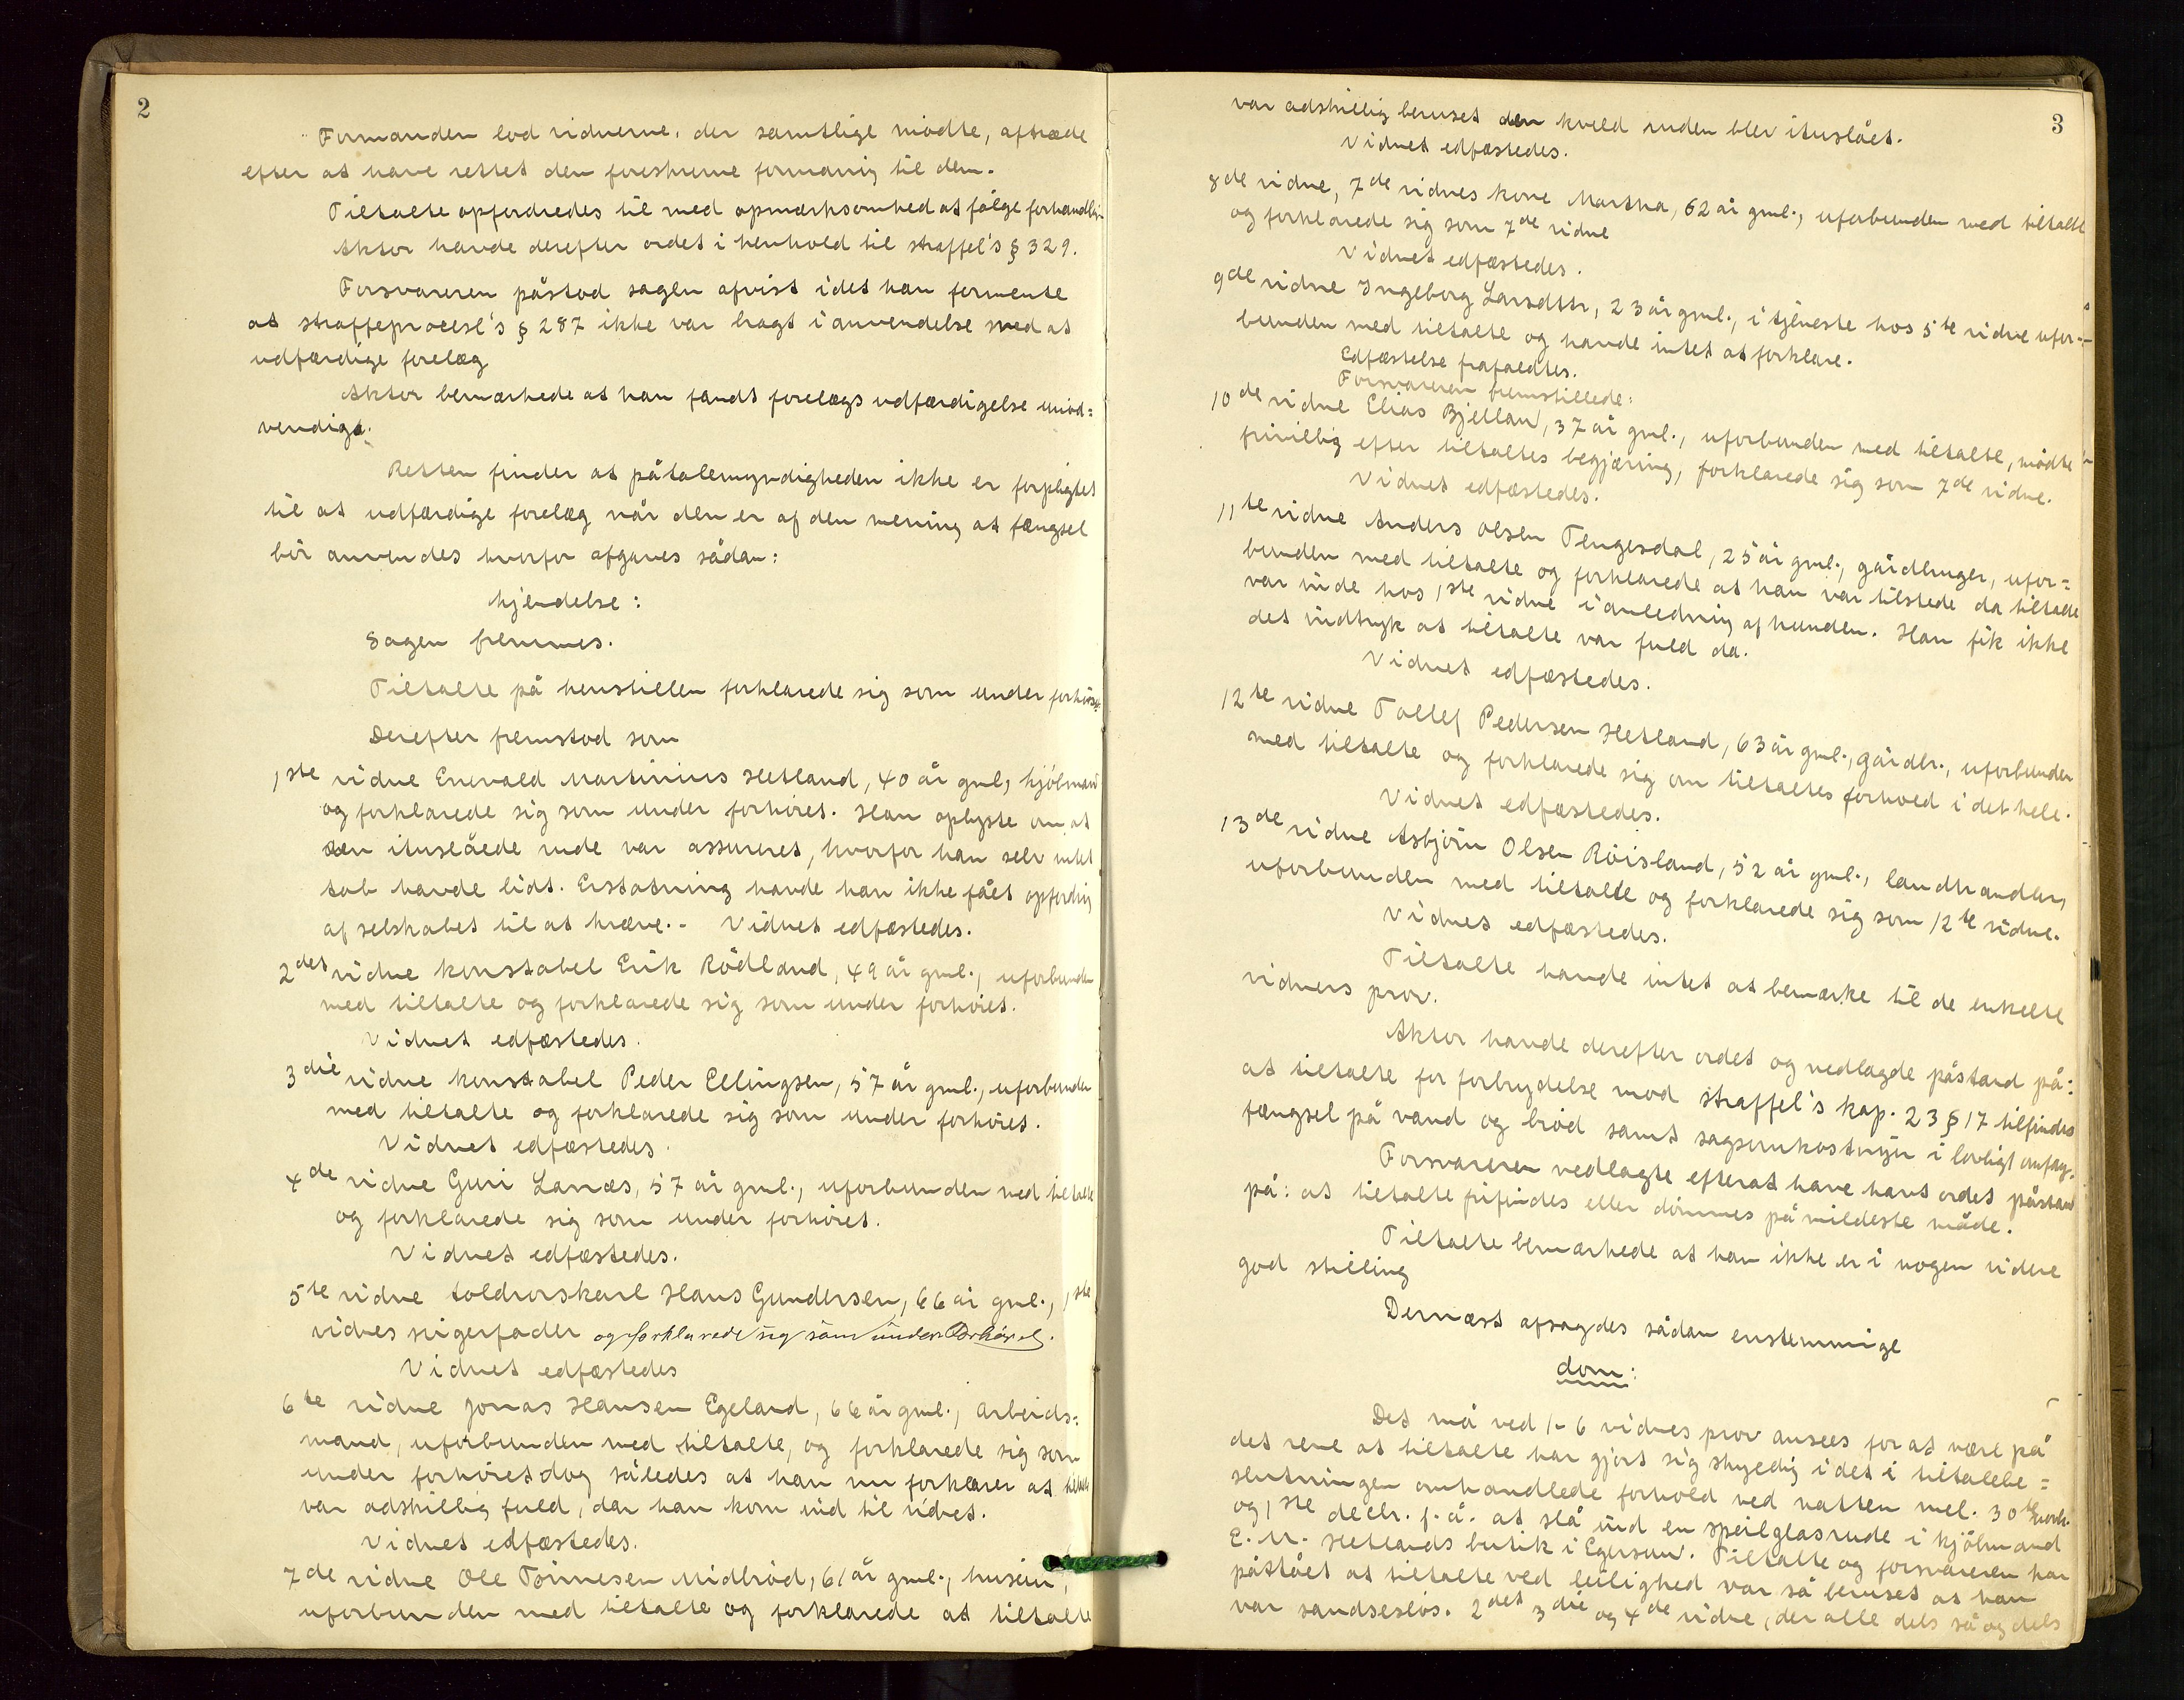 2
Formanden lod vidnerne, der samtlige mødte, aftræde
efter at have rettet den foreskrevne formaning til dem.
Tiltalte opfordredes til med opmærksomhed at følge forhandlin
Aktor havde derefter ordet i henhold til straffel's § 329.
Forsvareren påstod sagen afvist idet han formente
at straffeprocesl's § 287 ikke var bragt i anvendelse med at
udfærdige forelæg
Aktor bemærkede at han fandt forelægs udfærdigelse unød=
vendigt.
Retten finder at påtalemyndigheden ikke er forpligtet
til at udfærdige forelæg når den er af den mening at fængsel
bør anvendes hvorfor afgaves sådan:
kjendelse:
Sagen fremmes.
Tiltalte på henstillen forklarede sig som under forhøret.
Derefter fremstod som
1ste vidne Enevald Martinius Hetland, 40 år gml, kjøbmand
og forklarede sig som under forhøret. Han oplyste om at
den ituslåede rude var assureret, hvorfor han selv intet
tab havde lidt. Erstatning havde han ikke fået opfordring
af selskabet til at kræve.- Vidnet edfæstedes.
2det vidne konstabel Erik Rødland, 49 år gml., uforbunden
med tiltalte og forklarede sig som under forhøret.
Vidnet edfæstedes.
3die vidne konstabel Peder Ellingsen, 57 år gml., uforbunden
med tiltalte og forklarede sig som under forhøret.
Vidnet edfæstedes.
4de vidne Guri Lanæs, 57 år gml., uforbunden med tiltalte
og forklarede sig som under forhøret.
Vidnet edfæstedes.
5te vidne toldrorskarl Hans Gundersen, 66 år gml., 1ste
vidnes svigerfader og forklarede sig som under Forhøret.
Vidnet edfæstedes
6te vidne Jonas Hansen Egeland, 66 år gml., arbeids=
mand, uforbunden med tiltalte, og forklarede sig som
under forhøret dog således at han nu forklarer at tiltalte
var adskillig fuld, da han kom ind til vidnet.
Vidnet edfæstedes.
7de vidne Ole Tønnesen Midbrød, 61 år gml., huseier,
uforbunden med tiltalte og forklarede at tiltalte
3
var adskillig beruset den kveld ruden blev ituslået.
Vidnet edfæstedes.
8de vidne, 7de vidnes kone Martha, 62 år gml., uforbunden med tiltalte
og forklarede sig som 7de vidne
Vidnet edfæstedes.
9de vidne Ingeborg Larsdttr, 23 år gml., i tjeneste hos 5te vidne ufor-
bunden med tiltalte og havde intet at forklare.
Edfæstelse frafaldtes.
Forsvareren fremstillede:
10de vidne Elias Bjelland, 37 år gml., uforbunden med tiltalte, mødte
frivillig efter tiltaltes begjæring, forklarede sig som 7de vidne.
Vidnet edfæstedes.
11te vidne Anders Olsen Tengesdal, 25 år gml., gårdbruger, ufor=
bunden med tiltalte og forklarede at han var tilstede da tiltalte
var inde hos 1ste vidne i anledning af hunden. Han fik ikke
det indtryk at tiltalte var fuld da.
Vidnet edfæstedes.
12te vidne Tollef Pedersen Hetland, 63 år gml., gårdbr., uforbunden
med tiltalte og forklarede sig om tiltaltes forhold i det hele.
Vidnet edfæstedes.
13de vidne Asbjørn Olsen Røisland, 52 år gml., landhandler,
uforbunden med tiltalte og forklarede sig som 12te vidne.
Vidnet edfæstedes.
Tiltalte havde intet at bemærke til de enkelte
vidners prov.
Aktor havde derefter ordet og nedlagde påstand på:
at tiltalte for forbrydelse mod straffel's kap. 23 § 17 tilfindes
fængsel på vand og brød samt sagsomkostninger i lovligt omfag.
Forsvareren nedlagte efterat have havt ordet påstand
på: at tiltalte frifindes eller dømmes på mildeste måde.
Tiltalte bemærkede at han ikke er i nogen videre
god stilling
Dernæst afsagdes sådan enstemmige
dom:
Det må ved 1-6 vidnes prov ansees for at være på
det rene at tiltalte har gjort sig skyldig i det i tiltalebe=
slutningen omhandlede forhold ved natten mel. 30te novbr.
og 1ste decbr. f. å. at slå ind en speilglasrude i kjøbmand
E. M. Hetlands butik i Egersund. Tiltalte og forsvareren har
påstået at tiltalte ved leilighed var så beruset at han
var sandsesløs. 2det 3die og 4de vidne, der alle dels så og dels